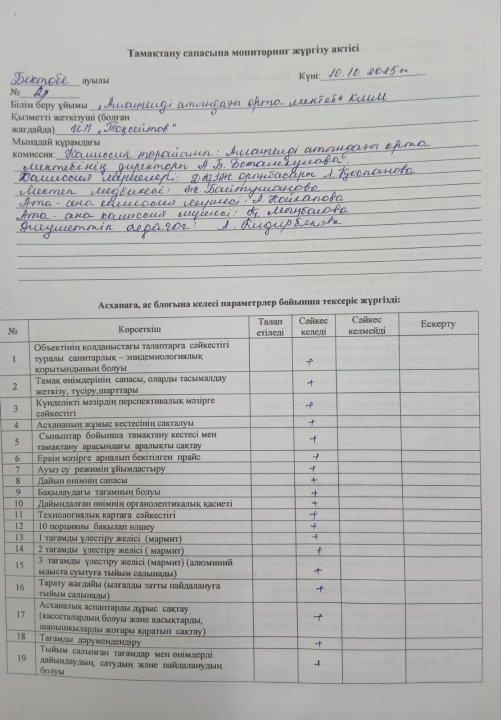 Тамақтану сапасына мониторинг жүргізу актісі
Бектөбе ауылы Күні: 10.10.2025ж
№ 2
Білім беру ұйымы „Аманкелді атындағы орта мектебі" КММ
Қызметті жеткізуші (болған
жағдайда) ЖК „Тоқсейтов"
Мынадай құрамдағы
комиссия: Комиссия төрайымы: Аманкелді атындағы орта
мектебінің директоры А.Б.
Комиссия мүшелері: ДІЖК орынбасары Л Қоспанова
Мектеп медбикесі: Байтуманова
Ата-ана комиссия мүшесі: А
Ата-ана комиссия мүшесі: Қ Моңбаева
Әлеуметтік педагог: А.
Асханаға, ас блогына келесі параметрлер бойынша тексеріс жүргізді:
№ Көрсеткіш Талап етіледі Сәйкес келеді Сәйкес келмейді Ескерту
1 Объектінің қолданыстағы талаптарға сәйкестігі
туралы санитарлық – эпидемиологиялық
қорытындының болуы +
2 Тамақ өнімдерінің сапасы, оларды тасымалдау
жеткізу, түсіру,шарттары +
3 Күнделікті мәзірдің перспективалық мәзірге
сәйкестігі +
4 Асхананың жұмыс кестесінің сақталуы +
5 Сыныптар бойынша тамақтану кестесі мен
тамақтану арасындағы аралықты сақтау +
6 Еркін мәзірге арналып бекітілген прайс +
7 Ауыз су режимін ұйымдастыру +
8 Дайын өнімнің сапасы +
9 Бақылаудағы тағамның болуы +
10 Дайындалған өнімнің органолептикалық қасиеті +
11 Технологиялық картаға сәйкестігі +
12 10 порцияны бақылап өлшеу +
13 1 тағамды үлестіру желісі (мармит) +
14 2 тағамды үлестіру желісі ( мармит) +
15 3 тағамды үлестіру желісі (мармит) (алюминий
ыдыста суытуға тыйым салынады) +
16 Тарату жағдайы (ылғалды затты пайдалануға
тыйым салынады) +
17 Асханалық аспаптарды дұрыс сақтау
(кассеталардың болуы және қасықтарды,
шанышқыларды жоғары қаратып сақтау) +
18 Тағамды дәрумендендіру +
19 Тыйым салынған тағамдар мен өнімдерді
дайындаудың, сатудың және пайдаланудың
болуы +